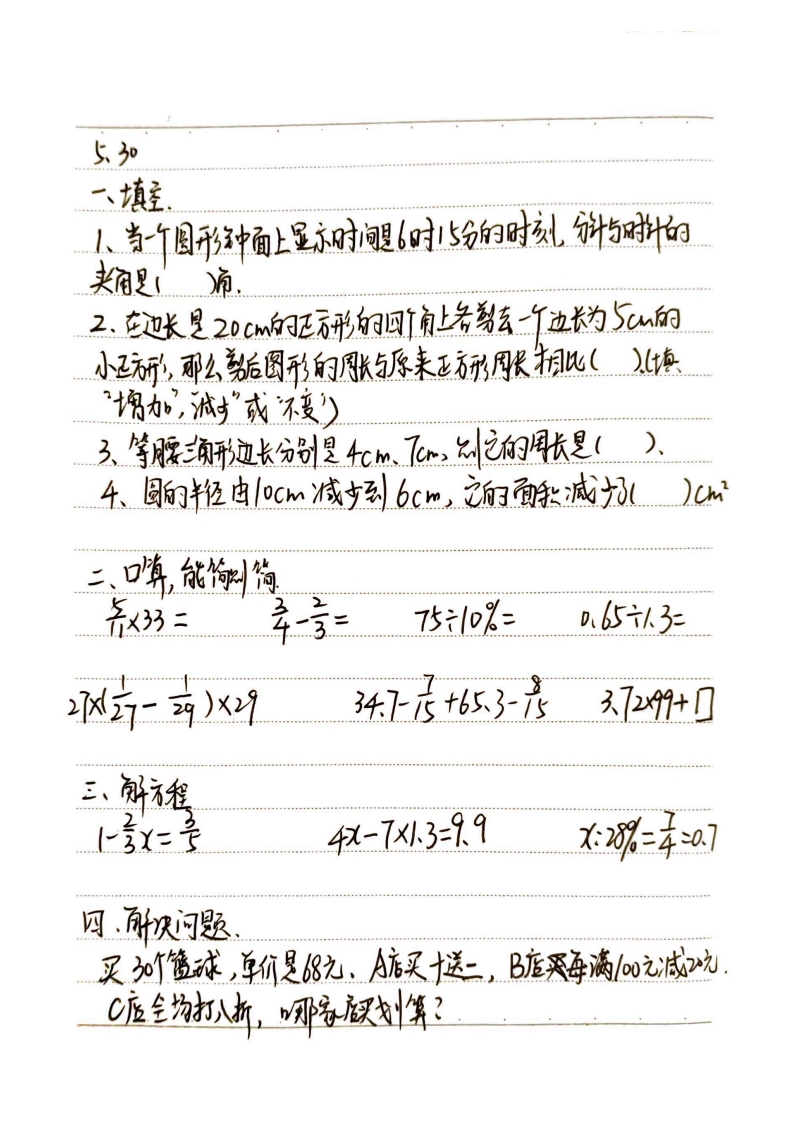 5.30
一、填空.
1、当一个圆形钟面上显示时间是6时15分的时刻,分针与时针的
夹角是(  )角.
2.在边长是20cm的正方形的四个角上各剪去一个边长为5cm的
小正方形,那么剪后图形的周长与原来正方形周长相比(  ).(填
"增加","减少"或"不变")
3、等腰三角形边长分别是4cm、7cm,则它的周长是(  )、
4、圆的半径由10cm减少到6cm,它的面积减少了(  )cm²
二、口算,能简则简.
5/11×33=  3/4-2/3=  75÷10%=  0.65÷1.3=
27×(1/27-1/29)×29  34.7-7/15+65.3-8/15  3.72×99+□
三、解方程
1-2/3x=3/5  4x-7×1.3=9.9  x:28%=7/4=0.7
四、解决问题、
买30个篮球,单价是68元、A店买十送二,B店每满100元减20元.
C店全场打八折,哪家店买划算?